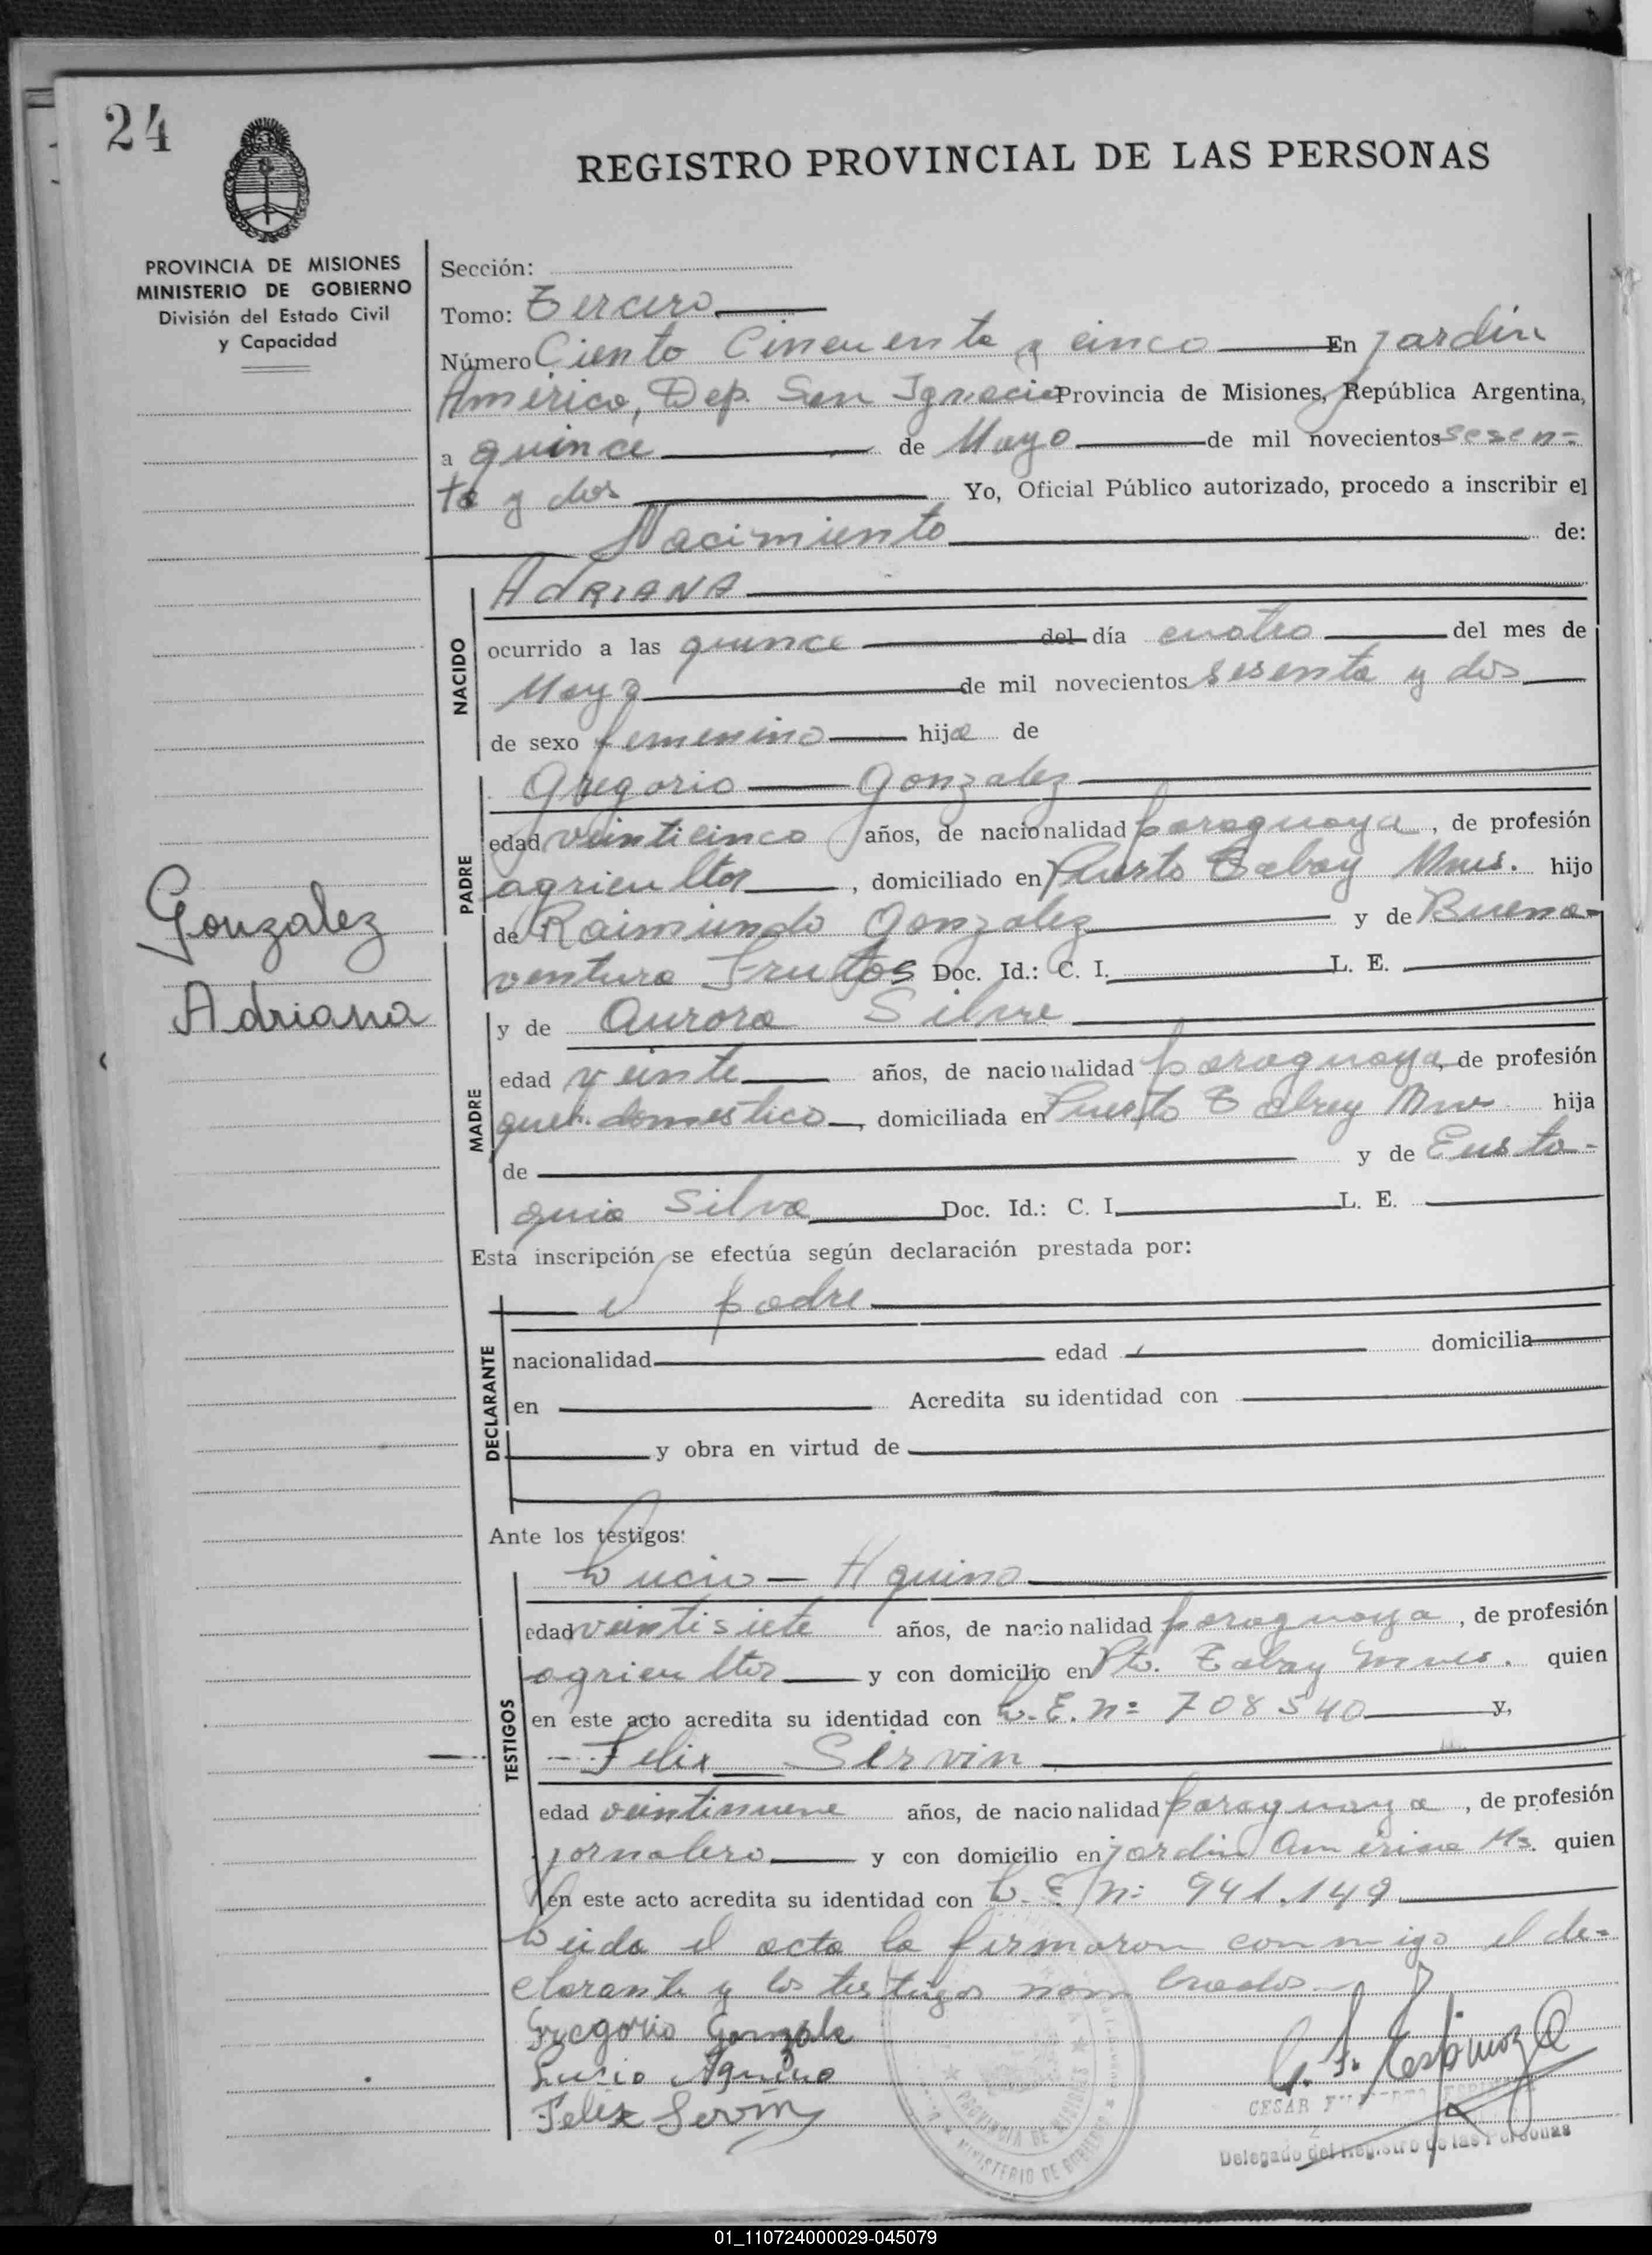 24
REGISTRO PROVINCIAL DE LAS PERSONAS
PROVINCIA DE MISIONES
MINISTERIO DE GOBIERNO
División del Estado Civil
y Capacidad
Gonzalez
Adriana
Sección:
Tomo: Tercero
Número Ciento Cincuenta y cinco En Jardin
America, Dep. San Ignacio Provincia de Misiones, República Argentina,
a quince de Mayo de mil novecientos sesen-
ta y dos Yo, Oficial Público autorizado, procedo a inscribir el
Nacimiento de:
NACIDO
AdRIANA
ocurrido a las quince del día cuatro del mes de
Mayo de mil novecientos sesenta y dos
de sexo femenino hija de
PADRE
Gregorio Gonzalez
edad veinticinco años, de nacionalidad paraguaya, de profesión
agricultor, domiciliado en Puerto Tabay Mnes. hijo
de Raimundo Gonzalez y de Buena-
ventura Frutos Doc. Id.: C. I. L. E.
MADRE
y de Aurora Silva
edad veinte años, de nacionalidad paraguaya, de profesión
queh. domestico, domiciliada en Puerto Tabay hija
de y de Eusta-
quia Silva Doc. Id.: C. I. L. E.
Esta inscripción se efectúa según declaración prestada por:
DECLARANTE
el padre
nacionalidad edad domicilia
en Acredita su identidad con
y obra en virtud de
Ante los testigos:
TESTIGOS
Lucio - Aquino
edad veintisiete años, de nacionalidad paraguaya, de profesión
agricultor y con domicilio en Pto. Tabay Mnes. quien
en este acto acredita su identidad con L. E. nº 708540 y,
Felix Servin
edad veintinueve años, de nacionalidad paraguaya, de profesión
jornalero y con domicilio en Jardin America Ms. quien
en este acto acredita su identidad con L. E. nº 941.149
Leida el acta la firmaron conmigo el de-
clarante y los testigos nombrados.
Gregorio Gonzale
Lucio Aquino
Felix Servin
C. F. Espinoza
CESAR
Delegado del Registro de las Personas
PROVINCIA DE MISIONES
MINISTERIO DE GOBIERNO
01_110724000029-045079